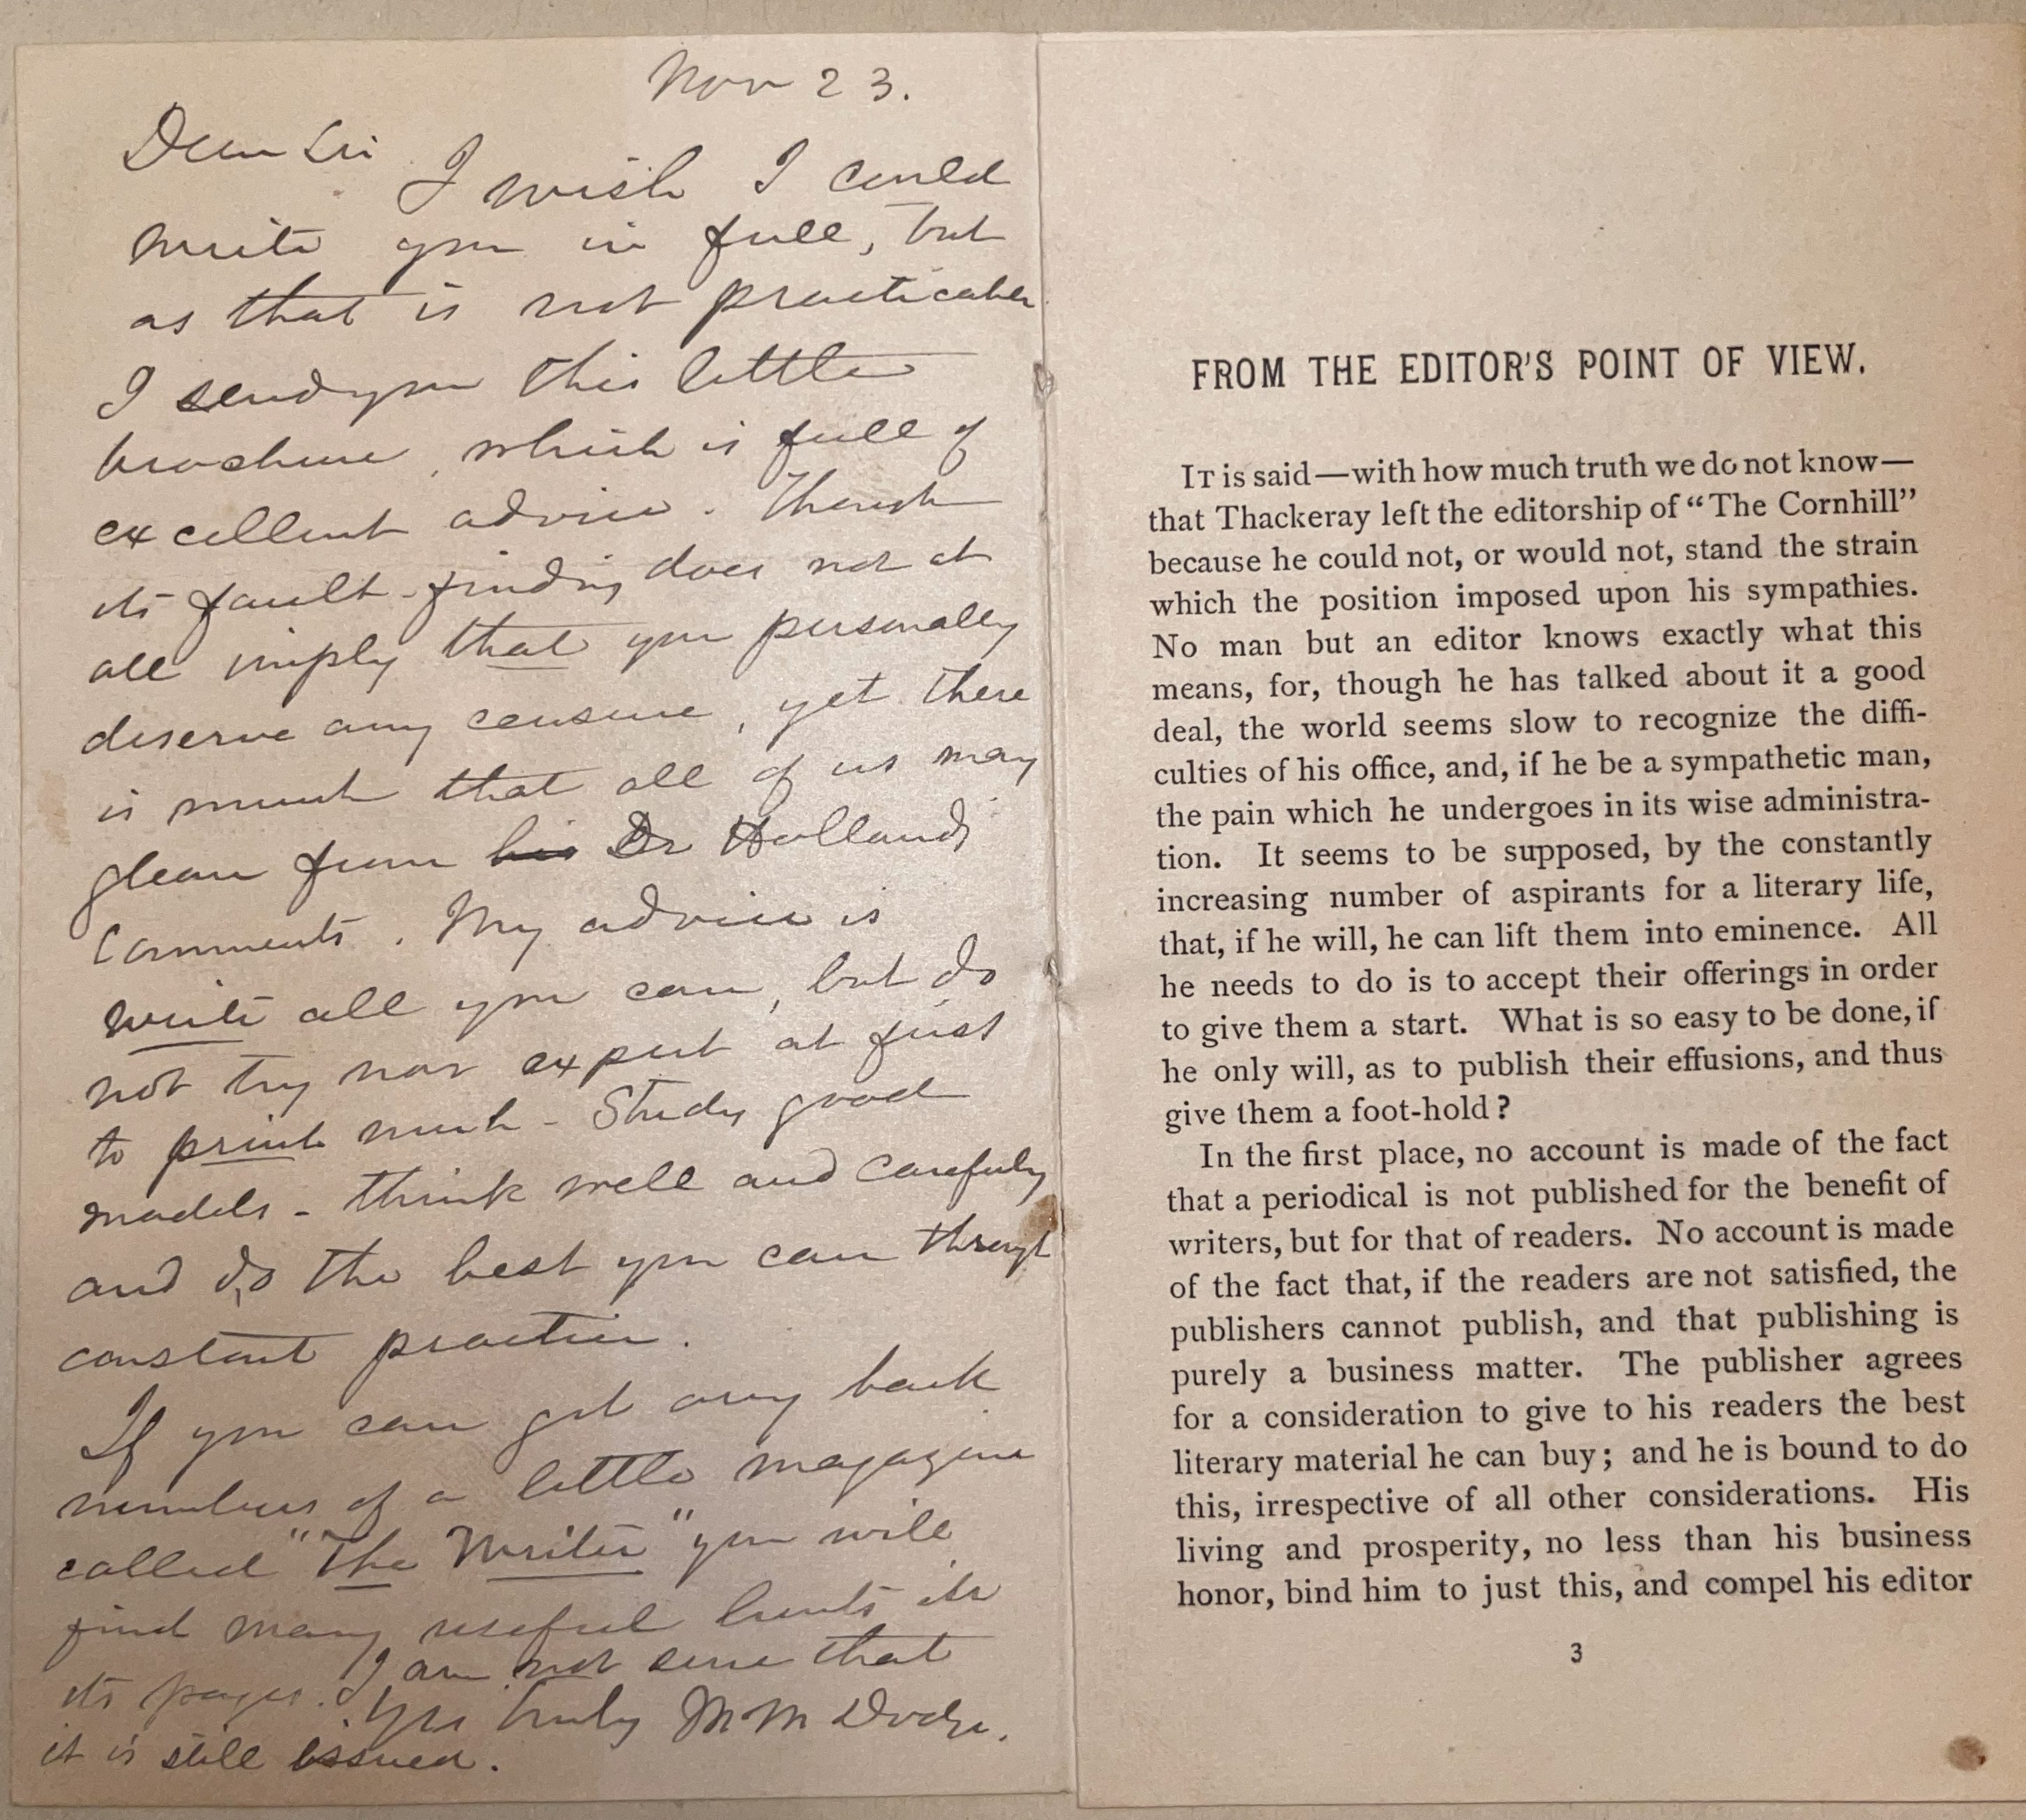 Nov 23.
Dear Sir
I wish I could
write you in full, but
as that is not practicable
I send you this little
brochure, which is full of
excellent advice. Though
its fault-finding does not at
all imply that you personally
deserve any censure, yet there
is much that all of us may
glean from his Dr Hollands
comments. My advice is
write all you can, but do
not try nor expect at first
to print much - Study good
models - think well and carefully
and do the best you can through
constant practice.
If you can get any back
numbers of a little magazine
called "The Writer" you will
find many useful hints in
its pages. I am not sure that
it is still issued.
Yrs truly M M Dodge.
FROM THE EDITOR'S POINT OF VIEW.
IT is said—with how much truth we do not know—
that Thackeray left the editorship of “The Cornhill”
because he could not, or would not, stand the strain
which the position imposed upon his sympathies.
No man but an editor knows exactly what this
means, for, though he has talked about it a good
deal, the world seems slow to recognize the diffi-
culties of his office, and, if he be a sympathetic man,
the pain which he undergoes in its wise administra-
tion. It seems to be supposed, by the constantly
increasing number of aspirants for a literary life,
that, if he will, he can lift them into eminence. All
he needs to do is to accept their offerings in order
to give them a start. What is so easy to be done, if
he only will, as to publish their effusions, and thus
give them a foot-hold?
In the first place, no account is made of the fact
that a periodical is not published for the benefit of
writers, but for that of readers. No account is made
of the fact that, if the readers are not satisfied, the
publishers cannot publish, and that publishing is
purely a business matter. The publisher agrees
for a consideration to give to his readers the best
literary material he can buy; and he is bound to do
this, irrespective of all other considerations. His
living and prosperity, no less than his business
honor, bind him to just this, and compel his editor
3